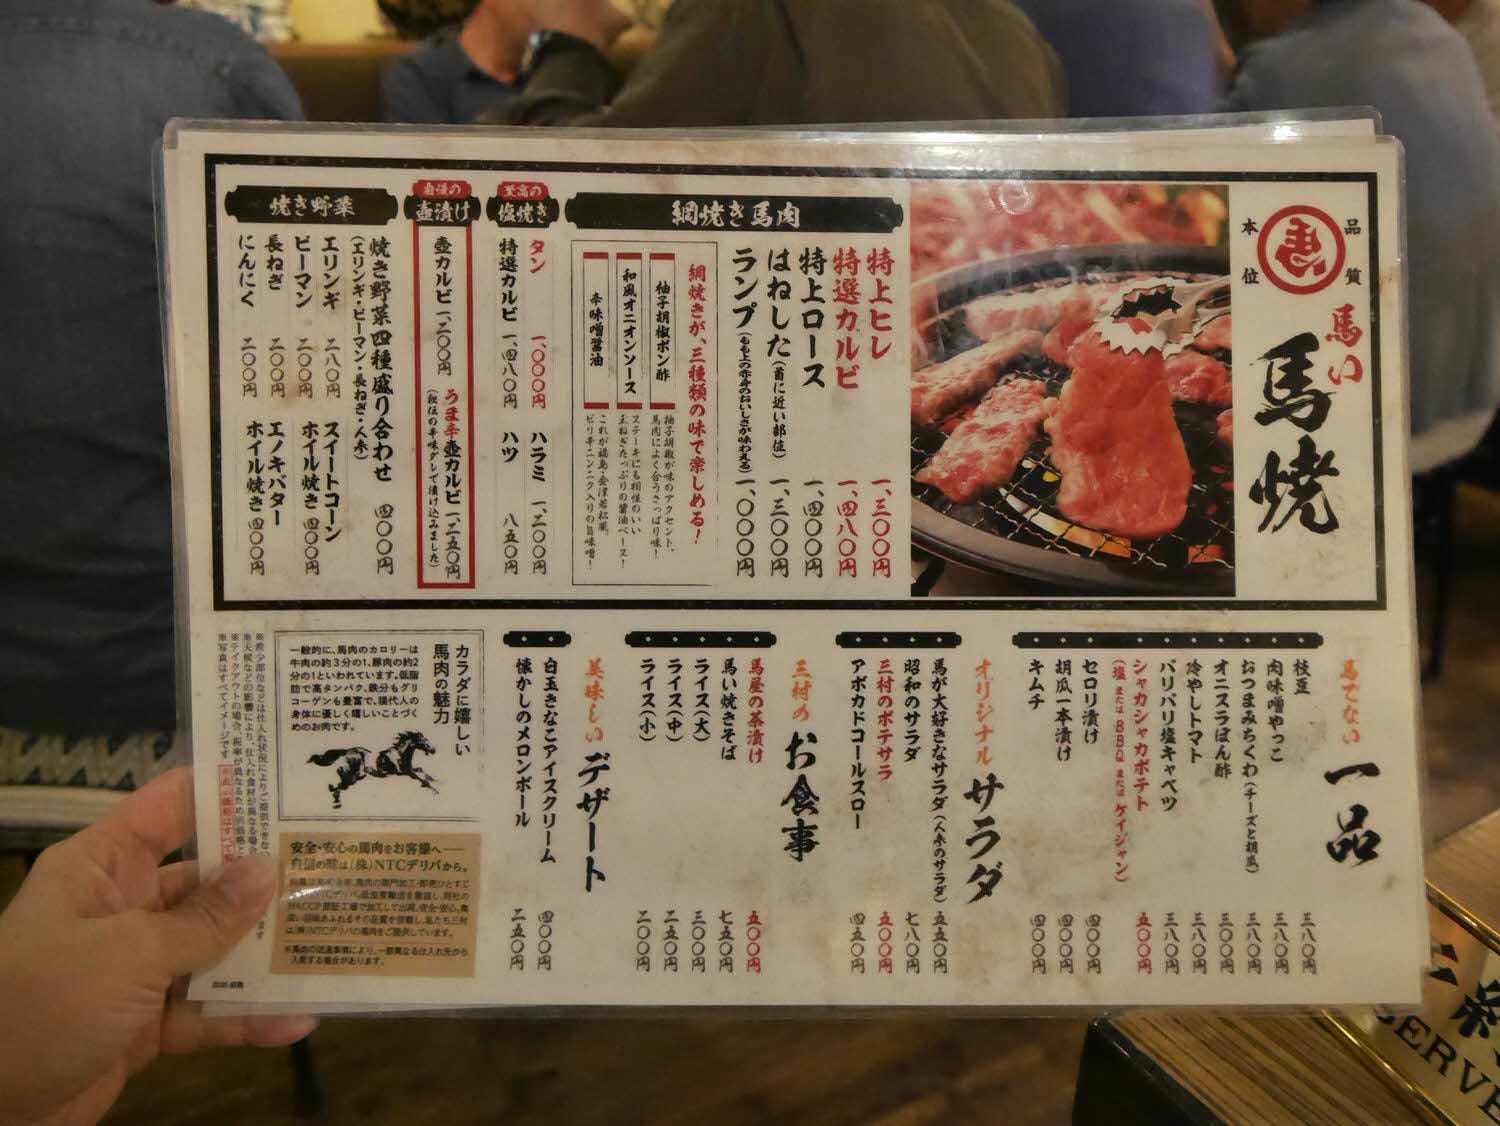 品質
本位
馬い
馬焼
網焼き馬肉
特上ヒレ 一、三〇〇円
特選カルビ 一、四八〇円
特上ロース 一、四〇〇円
はねした(首に近い部位) 一、三〇〇円
ランプ(もも上の赤身のおいしさが味わえる) 一、〇〇〇円
網焼きが、三種類の味で楽しめる!
柚子胡椒ポン酢
柚子胡椒が味のアクセント、
馬肉によく合うさっぱり味!
和風オニオンソース
ステーキにも相性のいい
玉ねぎたっぷりの醤油ベース!
辛味噌醤油
これが福島・会津若松風、
ピリ辛ニンニク入りの旨味噌!
至高の
塩焼き
タン 一、〇〇〇円
ハラミ 一、二〇〇円
特選カルビ 一、四八〇円
ハツ 八五〇円
自慢の
壺漬け
壺カルビ 一、二〇〇円
うま辛壺カルビ 一、二五〇円
(秘伝の辛味ダレで漬け込みました)
焼き野菜
焼き野菜四種盛り合わせ 四〇〇円
(エリンギ・ピーマン・長ねぎ・人参)
エリンギ 二八〇円
スイートコーン
ホイル焼き 四〇〇円
ピーマン 二〇〇円
長ねぎ 二〇〇円
エノキバター
ホイル焼き 四〇〇円
にんにく 二〇〇円
馬でない
一品
枝豆 三八〇円
肉味噌やっこ 三八〇円
おつまみちくわ(チーズと胡瓜) 三八〇円
オニスラぽん酢 三〇〇円
冷やしトマト 三八〇円
パリパリ塩キャベツ 三八〇円
シャカシャカポテト 五〇〇円
(塩 または BBQ または ケイジャン)
セロリ漬け 四〇〇円
胡瓜一本漬け 四〇〇円
キムチ 四〇〇円
オリジナル
サラダ
馬が大好きなサラダ(人参のサラダ) 五五〇円
昭和のサラダ 七八〇円
三村のポテサラ 五〇〇円
アボカドコールスロー 四五〇円
三村の
お食事
馬屋の茶漬け 五〇〇円
馬い焼きそば 七五〇円
ライス(大) 三〇〇円
ライス(中) 二五〇円
ライス(小) 二〇〇円
美味しい
デザート
白玉きなこアイスクリーム 四〇〇円
懐かしのメロンボール 二五〇円
カラダに嬉しい
馬肉の魅力
一般的に、馬肉のカロリーは
牛肉の約3分の1、豚肉の約2
分の1といわれています。低脂
肪で高タンパク、鉄分もグリ
コーゲンも豊富で、現代人の
身体に優しく嬉しいことづく
めのお肉です。
安全・安心の馬肉をお客様へ――
自信の味は(株)NTCデリバから。
HACCP認証工場で加工して出荷。安全・安心、
は(株)NTCデリバの馬肉をご提供しています。
※馬肉の流通事情により、一部異なる仕入れ先から
入荷する場合があります。
※希少部位などは仕入れ状況によりご提供できない
※天候などの影響により、仕入れ食材が異なる場合
※テイクアウトの場合、税率が異なるため
※写真はすべてイメージです